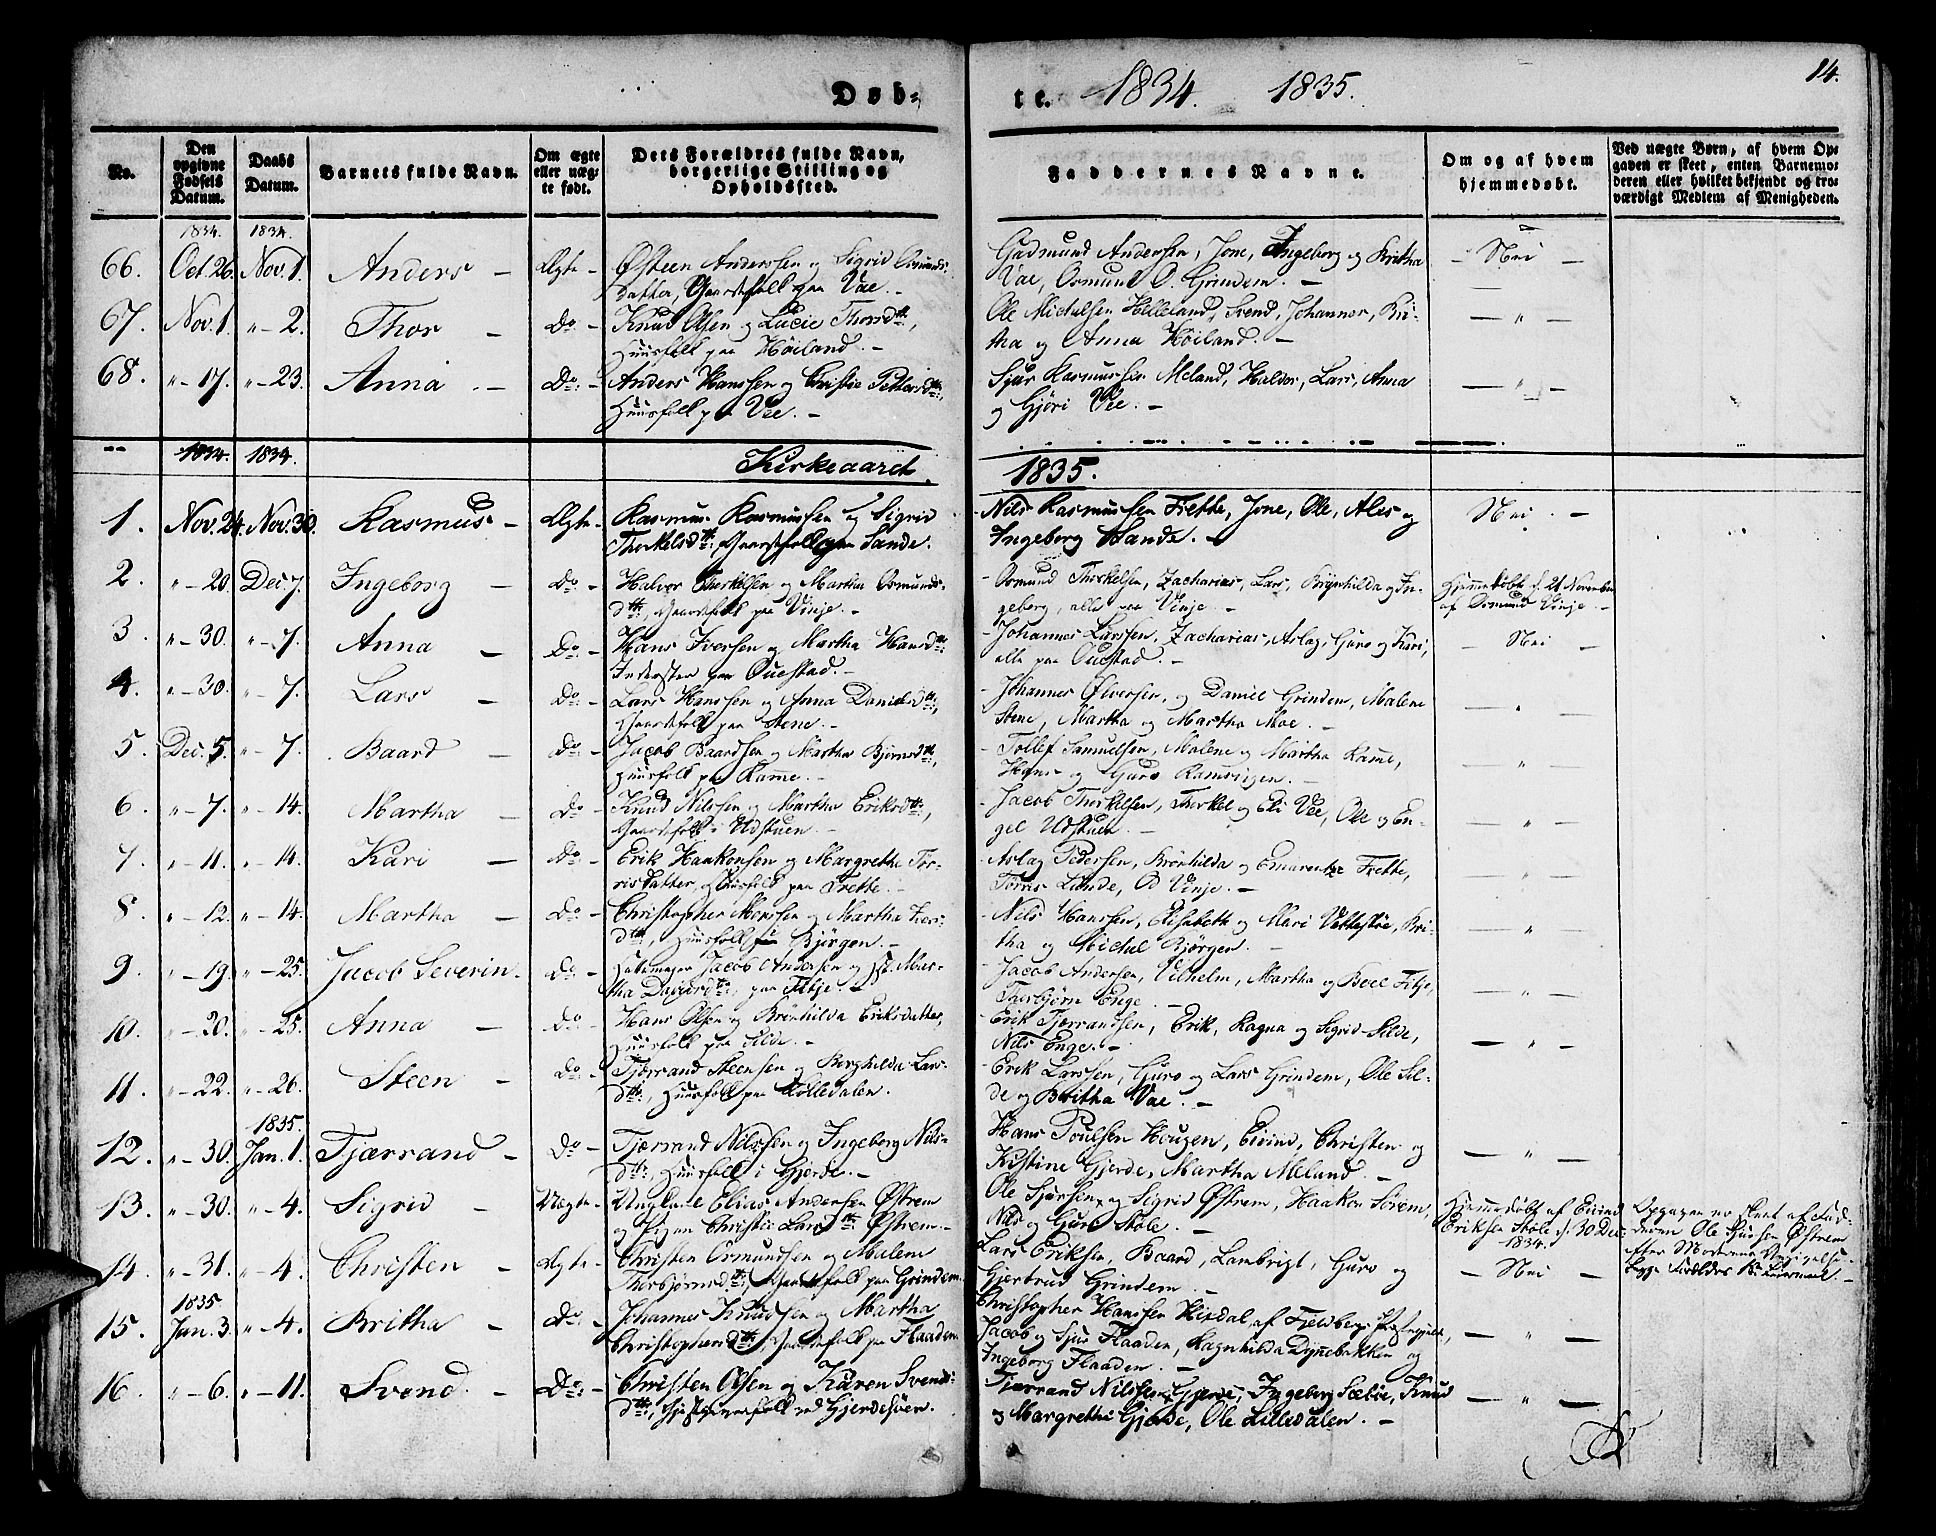 Døb=
te. 1834. 1835.
14.
No.
Den opgivne Fødsels Datum.
Daabs Datum.
Barnets fulde Navn.
Om ægte eller uægte født.
Dets Forældres fulde Navn, borgerlige Stilling og Opholdssted.
Faddernes Navne.
Om og af hvem hjemmedøbt.
Ved uægte Børn, af hvem Opgaven er skeet, enten Barnemoderen eller hvilket bekjendt og troværdigt Medlem af Menigheden.
1834. 1834.
66. Oct. 26. Nov. 1. Anders - Ægte - Østeen Anderssen og Sigrid Osmunds-
datter, Gaardfolk paa Vae. -
Gudmund Anderssen, Jone, Ingeborg og Britha
Vae, Osmund O. Grindem. -
- Nei -
67. Nov. 1. " - 2. Thor - Do - Knud Olsen og Lucie Thorsdtr,
Huusfolk paa Høiland. -
Ole Michelsen Helleland, Svend, Johannes, Bri-
tha og Anna Høiland. -
- " -
68. " - 17. " - 23. Anna - Do: - Anders Hanssen og Christie
Huusfolk paa Vee. -
Sjur Rasmussen Meland, Haldor, Lars, Anna
og Gjøri Vee. -
- " -
1834. 1834. Kirkeaaret 1835.
1. Nov. 24. Nov. 30. Rasmus - Ægte - Rasmus Rasmussen og Sigrid
Thorkelsdtr: Gaardfolk paa Sande.
Nils Rasmussen Frette, Jone, Ole, Ales og
Ingeborg Sande. -
Nei. -
2. " - 20. Dec. 7. Ingeborg - Do: - Halvor Thorkelsen og Martha Osmunds-
dtr:, Gaardfolk paa Vinje. -
Osmund Thorkelsen, Zacharias, Lars, Brynhilda og In-
geborg, alle paa Vinje. -
Hjemmedøbt d. 21 November
af Osmund Vinje. -
3. " - 30. " - 7. Anna - Do: - Hans Iversen og Martha Hansdtr:
Indersten paa Ouestad. -
Johannes Larssen, Zacharias, Aslag, Guro og Kari,
alle paa Ouestad. -
- Nei -
4. " - 30. " - 7. Lars - Do: - Lars Hanssen og Anna Danielsdtr:,
Gaardfolk paa Stene. -
Johannes Ølversen, og Daniel Grindem, Malene
Stene, Martha og Martha Moe. -
- " -
5. Dec. 5. " - 7. Baard - Do: - Jacob Baardsen og Martha Bjørnsdtr,
Huusfolk paa Rame. -
Tollef Samuelsen, Malene og Martha Rame,
Hans og Guro Ramsvigen. -
- " -
6. " - 7. " - 14. Martha - Do: - Knud Nilssen og Martha Eriksdtr:,
Gaardfolk i Udstuen. -
Jacob Thorkelsen, Thorkel og Eli Vee, Ole og En-
gel Udstuen. -
- " -
7. " - 11. " - 14. Kari - Do: - Erik Haakonsen og Margrethe Tør-
risdatter, Huusfolk paa Frette. -
Aslag Pedersen, Brønhilda og Emerentze Frette,
Tørris Lunde, Od Vinje. -
- " -
8. " - 12. " - 14. Martha - Do - Christopher Monssen og Martha
dtr:, Huusfolk paa Bjørgen. -
Nils Hanssen, Elisabeth og Mari Vettestøe, Bri-
tha og Michel Bjørgen. -
- " -
9. " - 19. " - 25. Jacob Severin. - Do: - Jacob Andersen og Mar-
tha Davidsdtr:, paa Fitje. -
Jacob Andersen, Vilhelm, Martha og Boel Fitje,
Thorbjørn Enge. -
- " -
10. " - 20. " - 25. Anna - Do: - Hans Olsen og Brønhilda Eriksdatter,
Huusfolk paa Silde. -
Erik Tjerrandsen, Erik, Ragna og Sigrid Silde,
Nils Enge. -
- " -
11. " - 22. " - 26. Steen - Do: - Tjerrand Steensen og Borghilda Lars-
dtr:, Huusfolk paa Lilledalen. -
Erik Larssen, Guro og Lars Grindem, Ole Sil-
de og Britha Vae. -
1835.
12. " - 30. Jan. 1. Tjærrand - Do: - Tjærrand Nilssen og Ingeborg Nils-
dtr:, Huusfolk i Gjerde. -
Hans Poulsen Hougen, Eivind, Christen og
Kistine Gjerde, Martha Meland. -
- " -
13. " - 30. " - 4. Sigrid - Uægte - Ungkarl Elias Andersen Østrem
og Pigen Christie Larsdtr Østrem. -
Ole Sjursen, og Sigrid Østrem, Haakon Sørem,
Nils og Guro Stole. -
Hjemmedøbt af Eivind
Eriksen Stole d. 30 Dec.
1834.
Opgaven er skeet af Fad-
deren Ole Sjursen Østrem
efter Moderens
begge Forældres
14. " - 31. " - 4. Christen - Ægte - Christen Osmundsen og Malene
Thorbjørnsdtr:, Gaardfolk paa Grindem.
Lars Eriksen, Baard, Lambrigt, Guro og
Gjertrud Grindem. -
- Nei -
1835
15. Jan. 3. " - 4. Britha - Do: - Johannes Knudssen og Martha
Christophersdtr:, Gaardfolk paa Flaaden.
Christopher Hanssen Hisdal, af Fjeldbergs Præstegjeld,
Jacob og Sjur Flaaden, Ragnhilda Dynebakken og
Ingeborg Flaaden. -
- " -
16. " - 6. " - 11. Svend. - Do: - Christen Olsen og Karen Svends-
dtr:, ved Gjerdesøen.
Tjærrand Nilssen Gjerde, Ingeborg Sæbøe, Knud
og Margrethe Gjerde, Ole Lilledalen. -
- " -